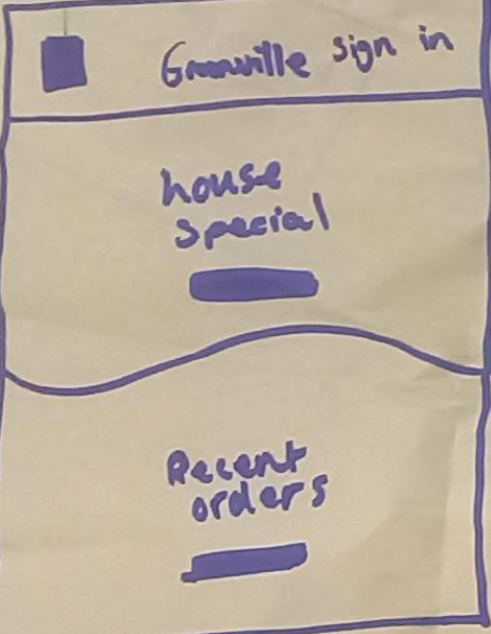 Granville sign in
house
special
Recent
orders